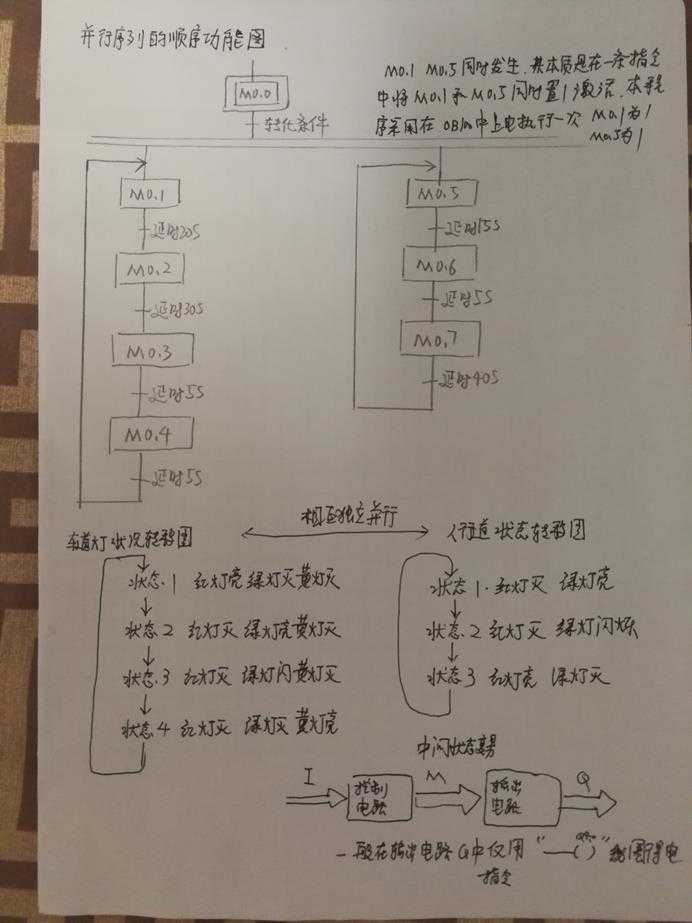 并行序列的顺序功能图
M0.1 M0.5同时发生.其本质是在一条指令
中将M0.1和M0.5同时置1激活.本程
序采用在OB100中上电执行一次 M0.1为1
M0.5为1
M0.0
转化条件
M0.1
延时20S
M0.2
延时30S
M0.3
延时5S
M0.4
延时5S
M0.5
延时15S
M0.6
延时5S
M0.7
延时40S
相互独立并行
车道灯状况转移图
状态1 红灯亮 绿灯灭黄灯灭
状态2 红灯灭 绿灯亮黄灯灭
状态3 红灯灭 绿灯闪黄灯灭
状态4 红灯灭 绿灯灭 黄灯亮
人行道状态转移图
状态1.红灯灭 绿灯亮
状态2 红灯灭 绿灯闪烁
状态3 红灯亮 绿灯灭
中间状态变量
I 控制电路 M 输出电路 Q
一般在输出电路Q中仅用“—( )”线圈得电
指令